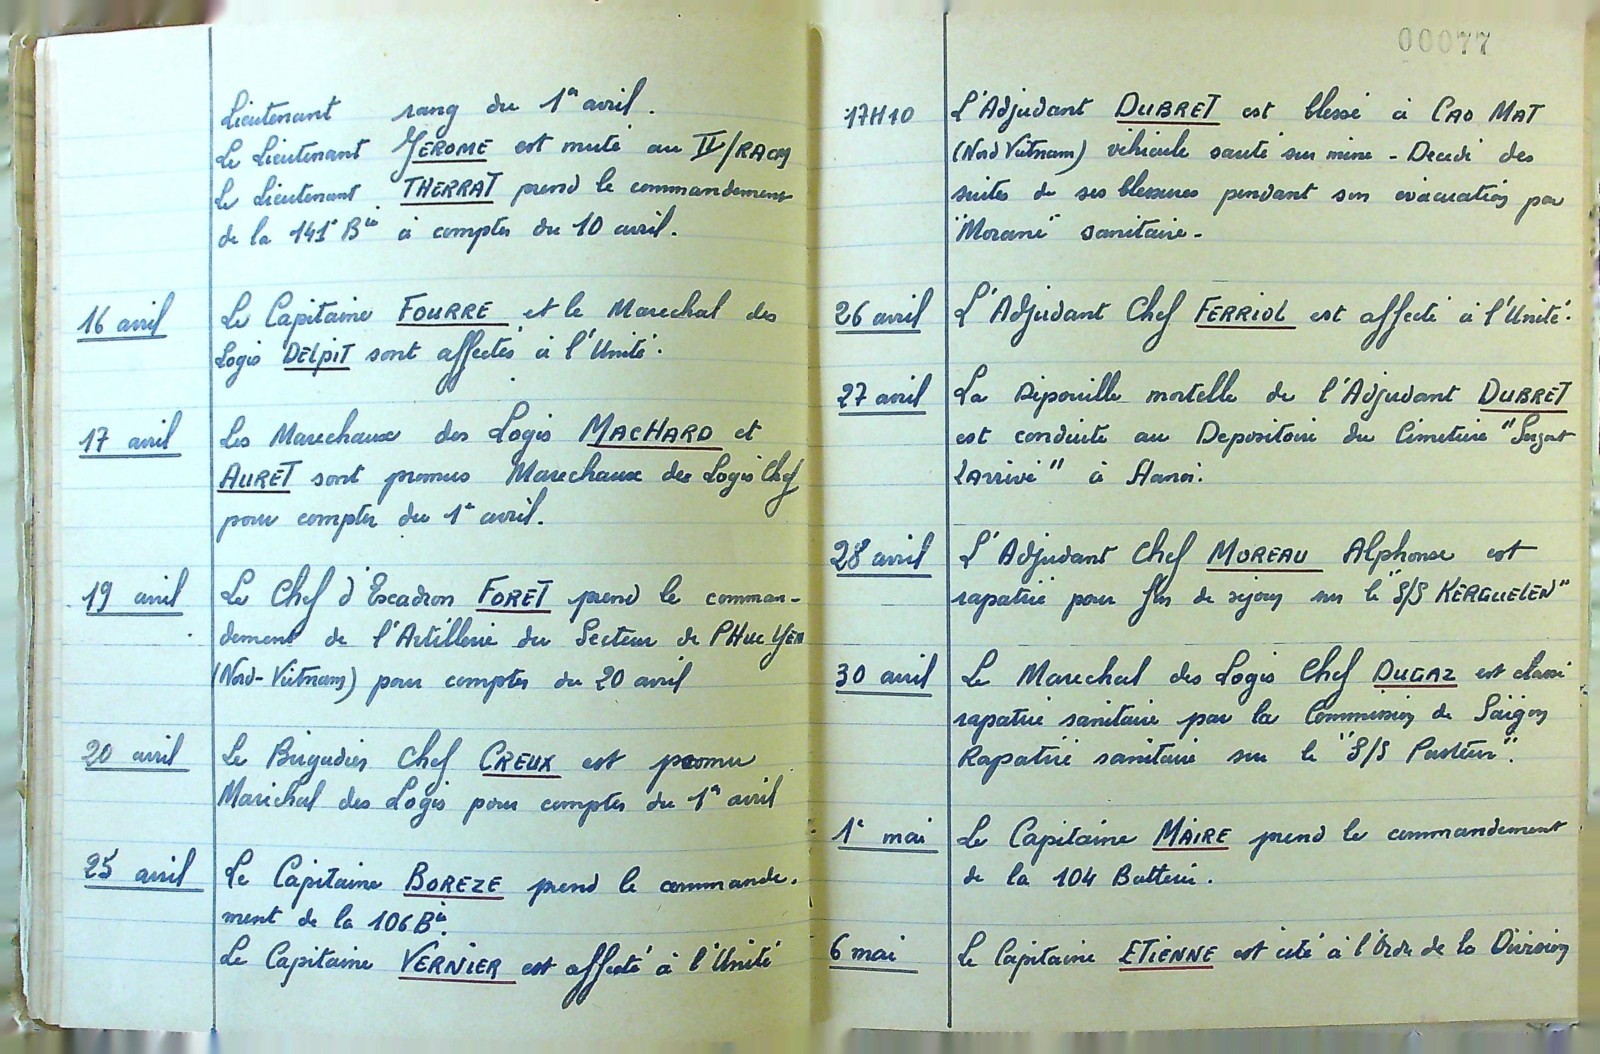 Lieutenant rang du 1er avril.
Le Lieutenant JEROME est muté au II/RACM
Le Lieutenant THERRAT prend le commandement
de la 141e Bie à compter du 10 avril.
16 avril Le Capitaine FOURRE et le Marechal des
Logis DELPIT sont affectés à l'Unité.
17 avril Les Marechaux des Logis MACHARD et
AURET sont promus Marechaux des Logis Chef
pour compter du 1er avril.
19 avril Le Chef d'Escadron FORET prend le comman-
dement de l'Artillerie du Secteur de PHUC YEN
(Nord-Viêtnam) pour compter du 20 avril
20 avril Le Brigadier Chef CREUX est promu
Maréchal des Logis pour compter du 1er avril
25 avril Le Capitaine BOREZE prend le commande-
ment de la 106 Bie.
Le Capitaine VERNIER est affecté à l'Unité
00077
17H10 L'Adjudant DUBRET est blessé à CAO MAT
(Nord Viêtnam) véhicule sauté sur mine - Décédé des
suites de ses blessures pendant son évacuation par
"Morane" sanitaire.
26 avril L'Adjudant Chef FERRIOL est affecté à l'Unité.
27 avril La Dépouille mortelle de l'Adjudant DUBRET
est conduite au Depositoire du Cimetière "Sergent
Larrivé" à Hanoi.
28 avril L'Adjudant Chef MOREAU Alphonse est
rapatrié pour fin de séjour sur le "S/S KERGUELEN"
30 avril Le Marechal des Logis Chef DUGAZ est classé
rapatrié sanitaire par la Commission de Saïgon
Rapatrié sanitaire sur le "S/S Pasteur".
1er mai Le Capitaine MAIRE prend le commandement
de la 104 Batterie.
6 mai Le Capitaine ETIENNE est cité à l'Ordre de la Division